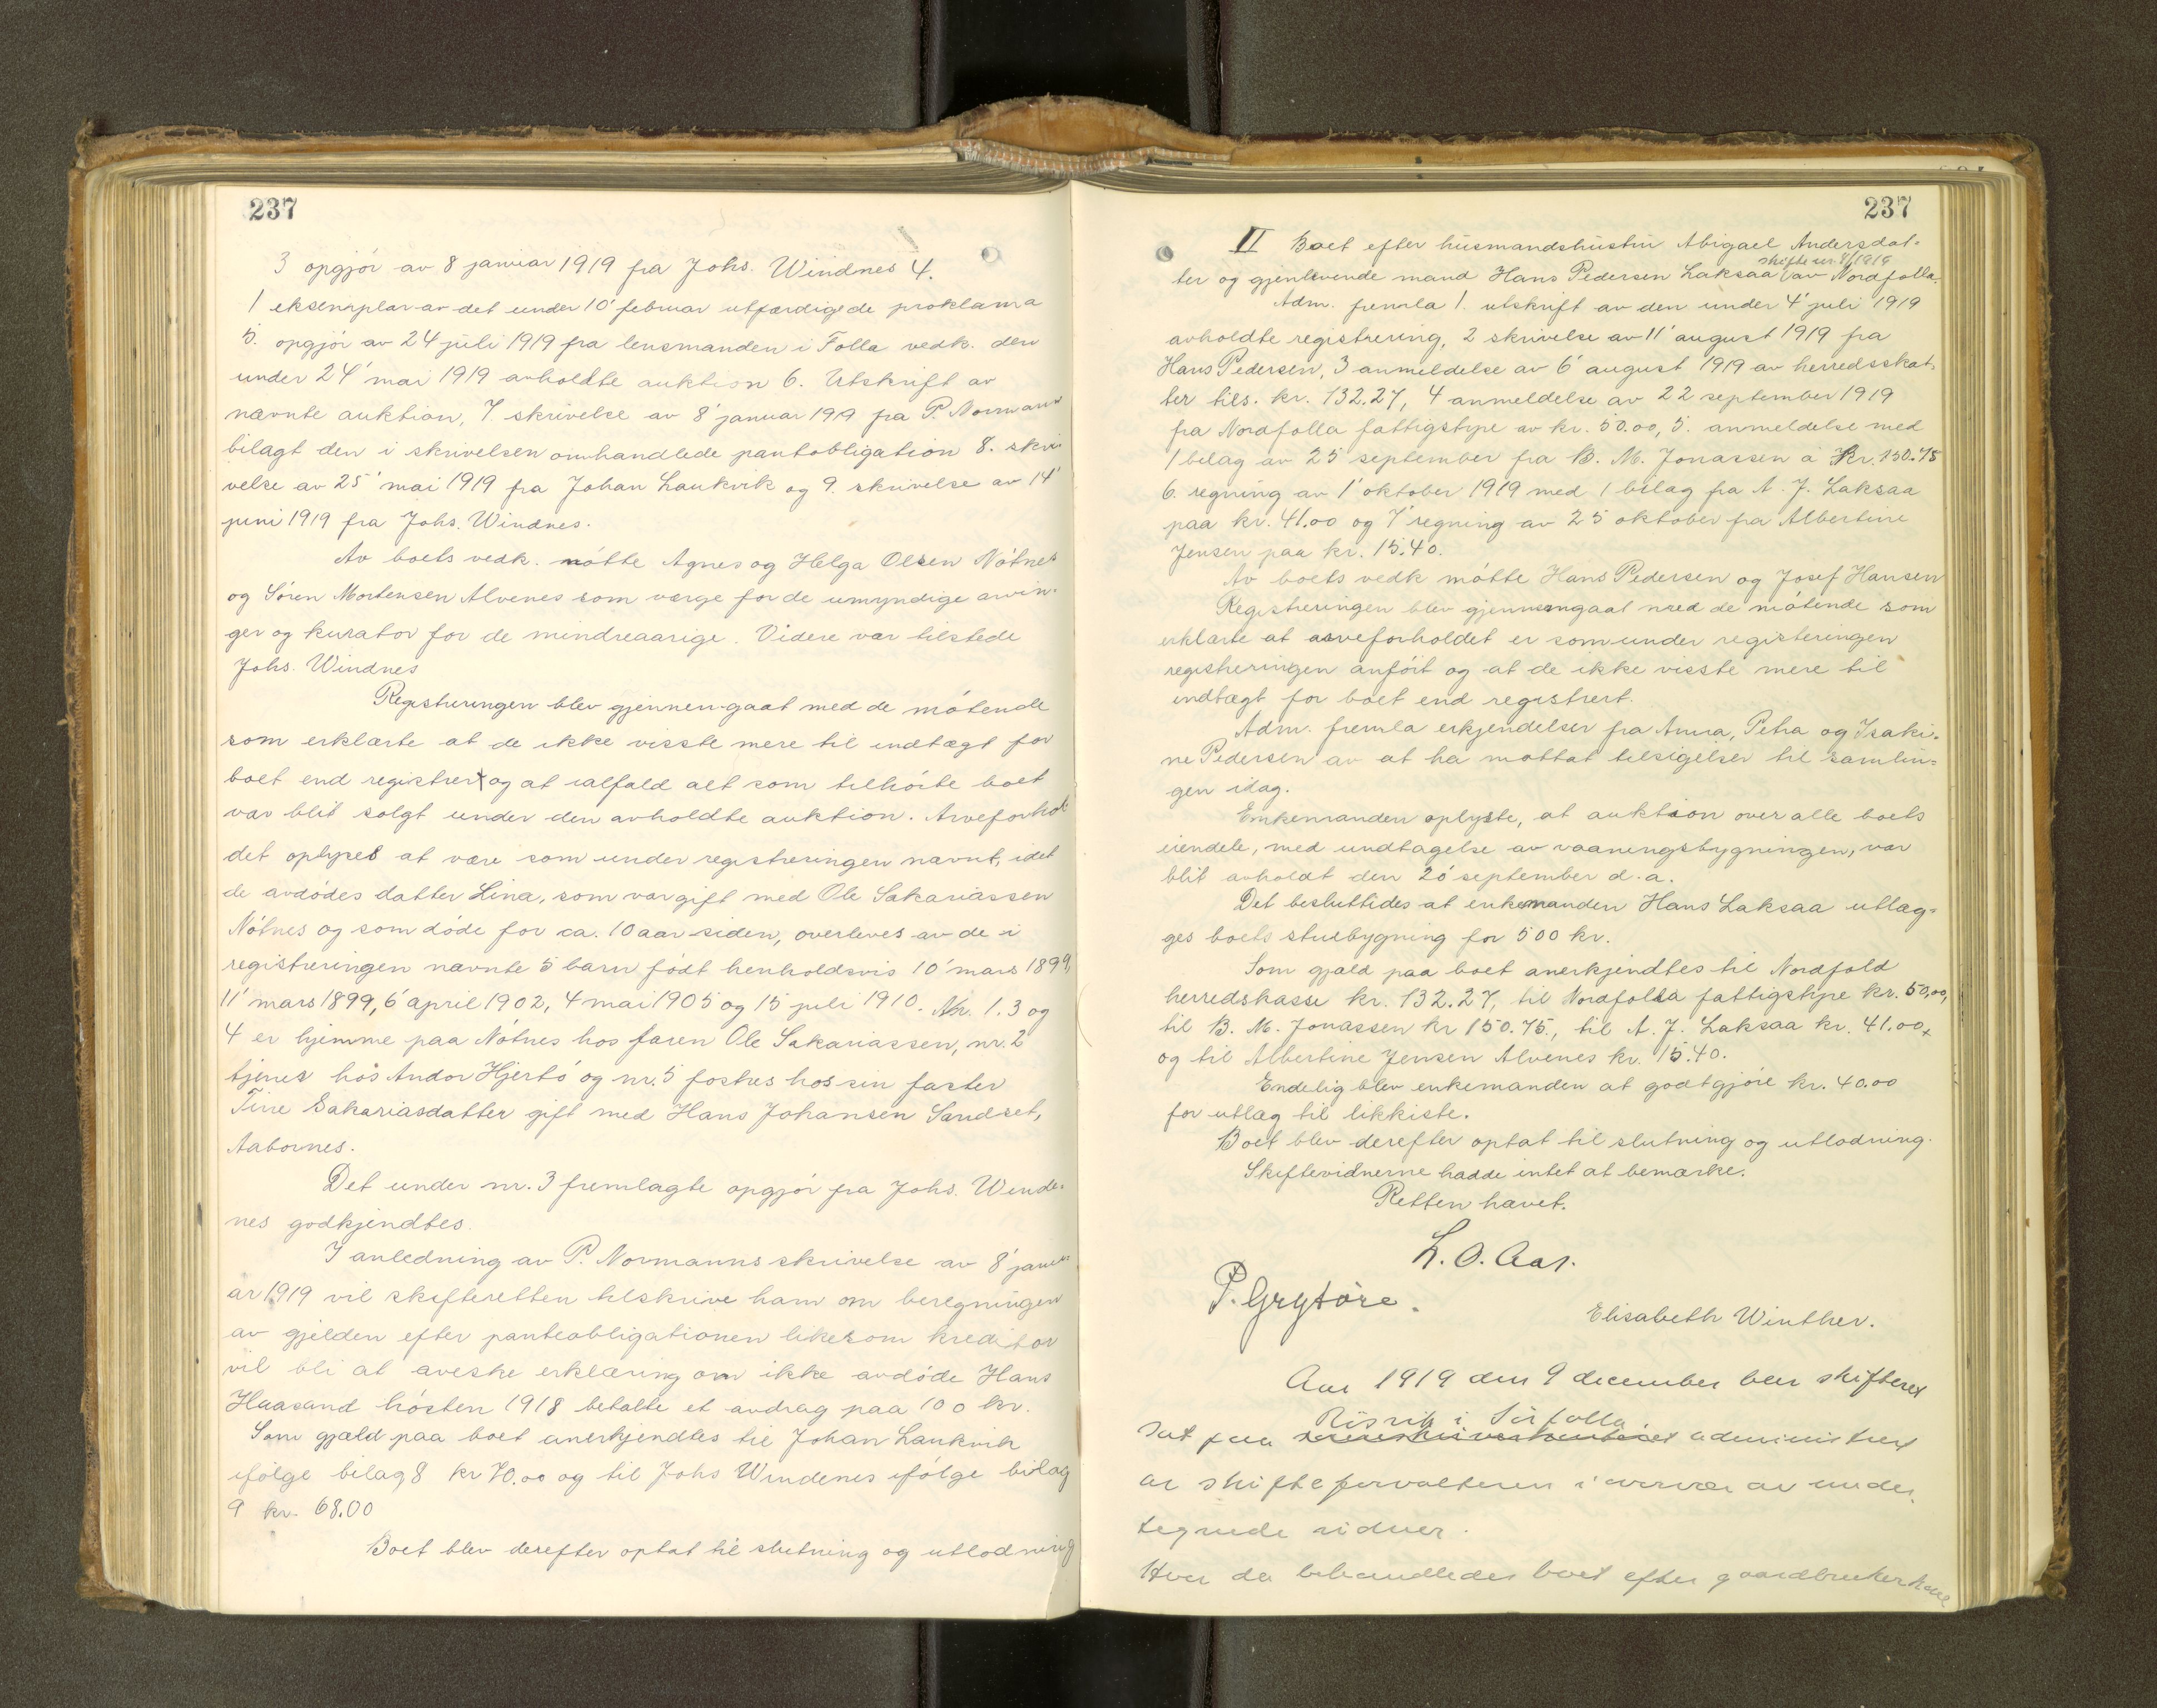 237
3 opgjör av 8 januar 1919 fra Johs. Windnes 4.
1 eksemplar av det under 10' februar utfærdigede proklama
5. opgjör av 24 juli 1919 fra lensmanden i Folla vedk. den
under 24' mai 1919 avholdte auktion 6. Utskrift av
nævnte auktion, 7. skrivelse av 8' januar 1919 fra P. Normann
bilagt den i skrivelsen omhandlede pantobligation 8. skri-
velse av 25' mai 1919 fra Johan Laukvik og 9. skrivelse av 14'
juni 1919 fra Johs. Windnes.
Av boets vedk. mötte Agnes og Helga Olsen Nötnes
og Sören Mortensen Alvenes som værge for de umyndige arvin-
ger og kurator for de mindreaarige. Videre var tilstede
Johs. Windnes
Registreringen blev gjennemgaat med de mötende
som erklærte at de ikke visste mere til indtægt for
boet end registrert og at ialfald alt som tilhörte boet
var blit solgt under den avholdte auktion. Arveforhol-
det oplystes at være som under registreringen nævnt, idet
de avdödes datter Lina, som var gift med Ole Sakariassen
Nötnes og som döde for ca. 10 aar siden, overleves av de i
registreringen nævnte 5 barn födt henholdsvis 10' mars 1899,
11' mars 1899, 6' april 1902, 4 mai 1905 og 15 juli 1910. Nr. 1. 3 og
4 er hjemme paa Nötnes hos faren Ole Sakariassen, nr. 2
tjener hos Andor Hjertö og nr. 5 fostres hos sin faster
Tine Sakariasdatter gift med Hans Johansen Sandset,
Aabornes.
Det under nr. 3 fremlagte opgjör fra Johs. Winde-
nes godkjendtes.
I anledning av P. Normanns skrivelse av 8' janu-
ar 1919 vil skifteretten tilskrive ham om beregningen
av gjelden efter panteobligationen likesom kreditor
vil bli at aveske erklæring om ikke avdöde Hans
Haasand hösten 1918 betalte et avdrag paa 100 kr.
Som gjæld paa boet anerkjendtes til Johan Laukvik
ifölge bilag 8 kr 70.00 og til Johs Windenes ifölge bilag
9 kr. 68.00
Boet blev derefter optat til slutning og utlodning
237
II Boet efter husmandshustru Abigael Andersdat-
skifte nr. 8/1919
ter og gjenlevende mand Hans Pedersen Laksaa (av Nordfolla.
Adm. fremla 1. utskrift av den under 4' juli 1919
avholdte registrering, 2 skrivelse av 11' august 1919 fra
Hans Pedersen, 3 anmeldelse av 6' august 1919 av herredsskat-
ter tils. kr. 132.27, 4 anmeldelse av 22 september 1919
fra Nordfolla fattigstyre av kr. 50.00, 5. anmeldelse med
1 bilag av 25 september fra B. M. Jonassen a Kr. 150.75
6. regning av 1' oktober 1919 med 1 bilag fra A. J. Laksaa
paa kr. 41.00 og 7' regning av 25 oktober fra Albertine
Jensen paa kr. 15.40.
Av boets vedk mötte Hans Pedersen og Josef Hansen
Registreringen blev gjennemgaat med de mötende som
erklærte at arveforholdet er som under registeringen
registreringen anfört og at de ikke visste mere til
indtægt for boet end registrert.
Adm. fremla erkjendelser fra Anna, Petra og Isaki-
ne Pedersen av at ha mottat tilsigelser til samlin-
gen idag.
Enkemanden oplyste, at auktion over alle boets
eiendele, med undtagelse av vaaningsbygningen, var
blit avholdt den 20' september d. a.
Det besluttedes at enkemanden Hans Laksaa utlæg-
ges boets stuebygning for 500 kr.
Som gjæld paa boet anerkjendtes til Nordfold
herredskasse kr. 132.27, til Nordfolla fattigstyre kr. 50,00,
til B. M. Jonassen kr 150.75, til A. J. Laksaa kr. 41.00,
og til Albertine Jensen Alvenes kr. 15.40.
Endelig blev enkemanden at godtgjöre kr. 40.00
for utlæg til likkiste.
Boet blev derefter optat til slutning og utlodning.
Skiftevidnerne hadde intet at bemærke.
Retten hævet.
L. O. Aas.
P. Grytöre.
Elisabeth Winther.
Aar 1919 den 9 december blev skifteret
Rösvik i Sörfolla
sat paa administrert
av skifteforvalteren i nærvær av under-
tegnede vidner.
Hvor da behandledes boet efter gaardbrukerkone